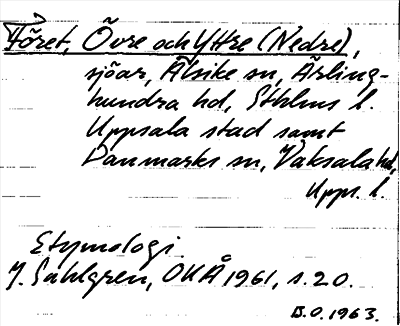 Föret, Övre och Yttre (Nedre),
sjöar, Alsike sn, Ärling-
hundra hd, Sthlms l.
Uppsala stad samt
Danmarks sn, Vaksala hd,
Upps. l.
Etymologi
J. Sahlgren, OUÅ 1961, s. 20.
B.O. 1963.